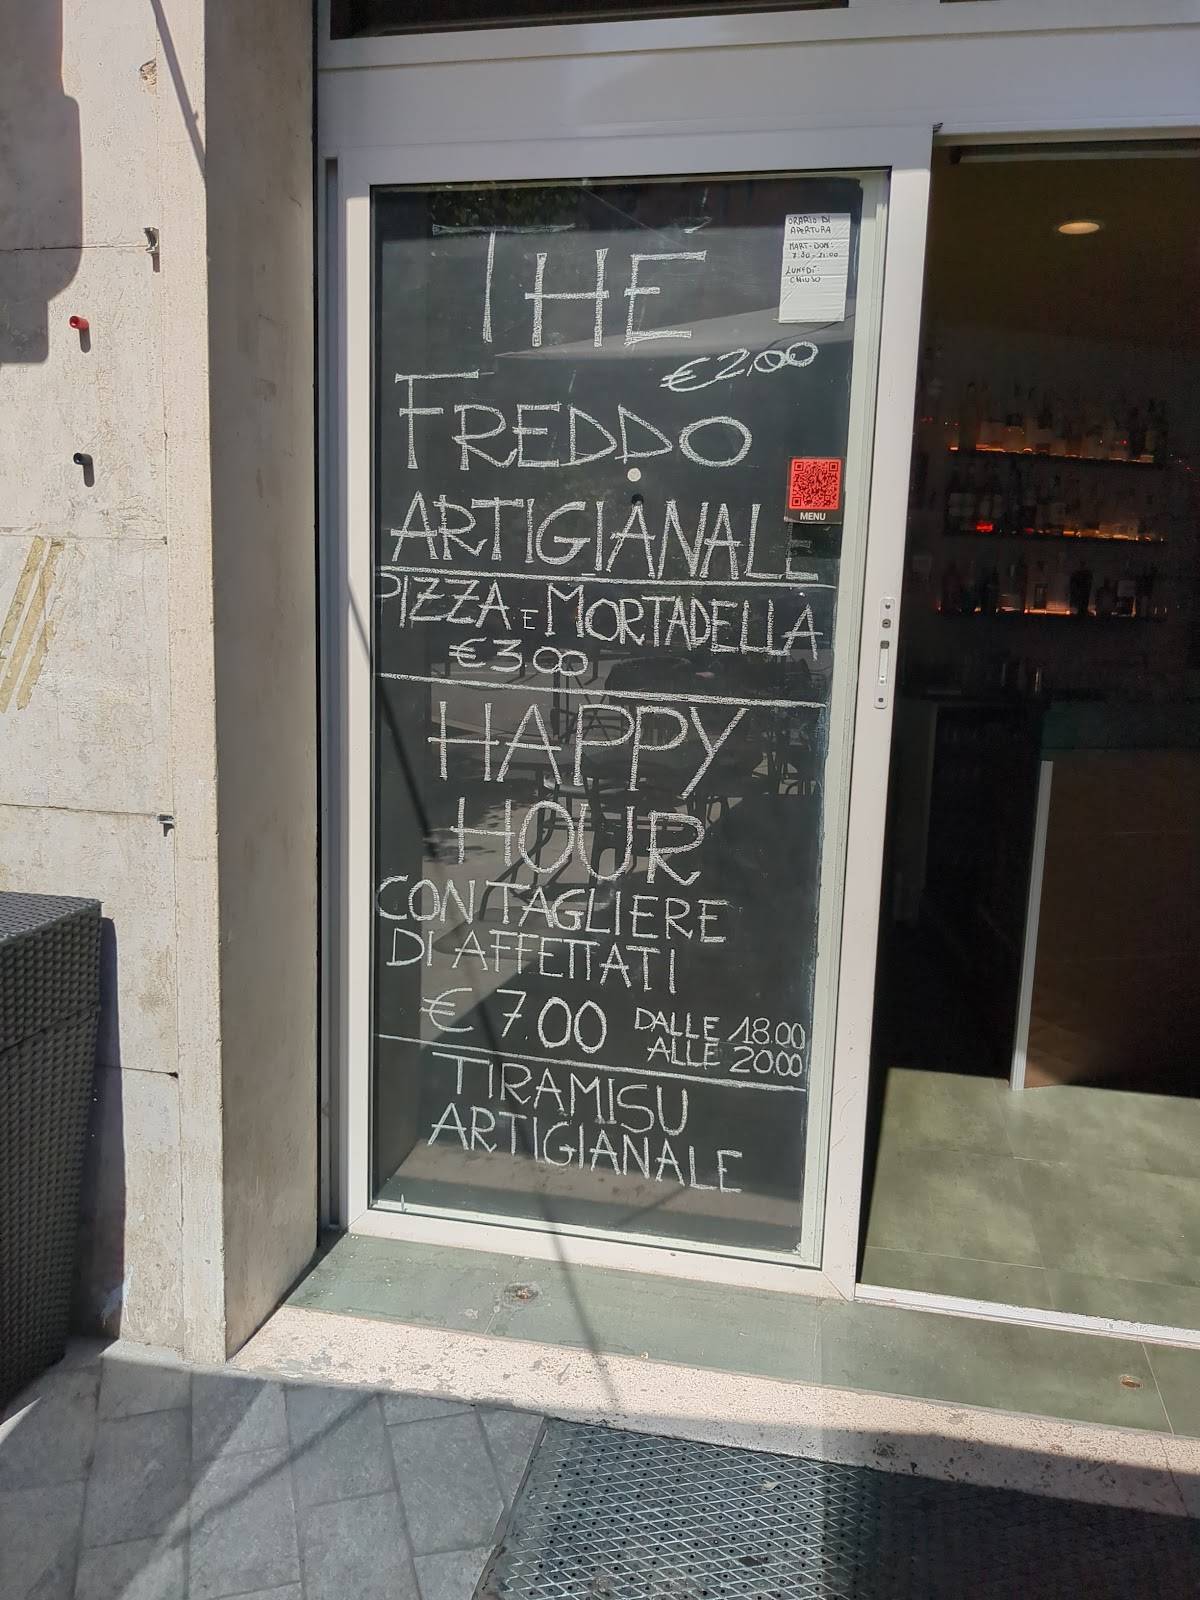 THÉ
€2,00
FREDDO
ARTIGIANALE
PIZZA E MORTADELLA
€3.00
HAPPY
HOUR
CON TAGLIERE
DI AFFETTATI
€ 7.00
DALLE 18.00
ALLE 20.00
TIRAMISU
ARTIGIANALE
ORARIO DI
APERTURA
MART-DOM:
7:30-21:00
LUNEDÌ
CHIUSO
MENU